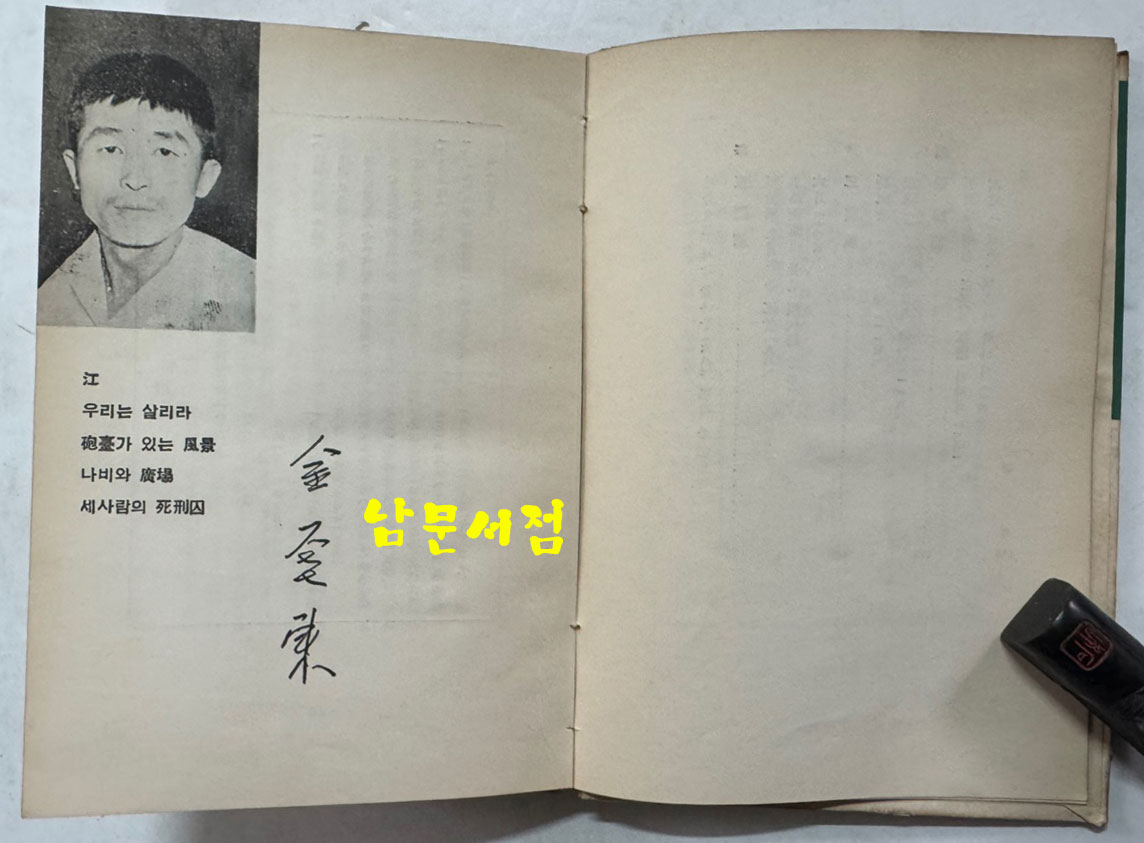 江
우리는 살리라
砲臺가 있는 風景
나비와 廣場
세사람의 死刑囚
金奎東
남문서점